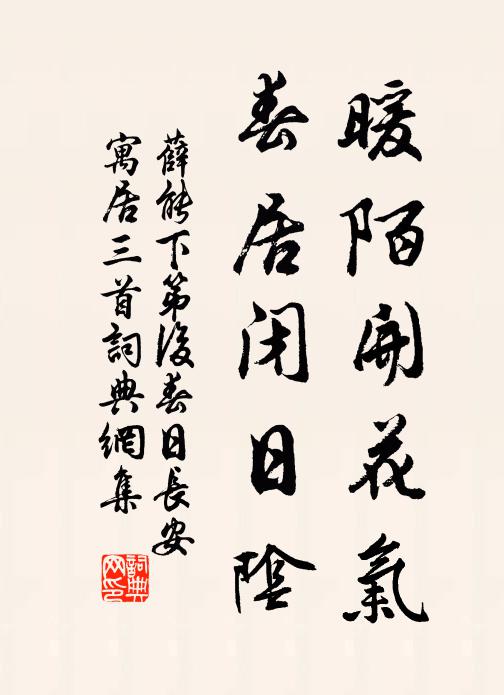 暖陌開花氣
春居闭日陰
薛能下第後春日長安
寓居三首詞典網集
詞典網印